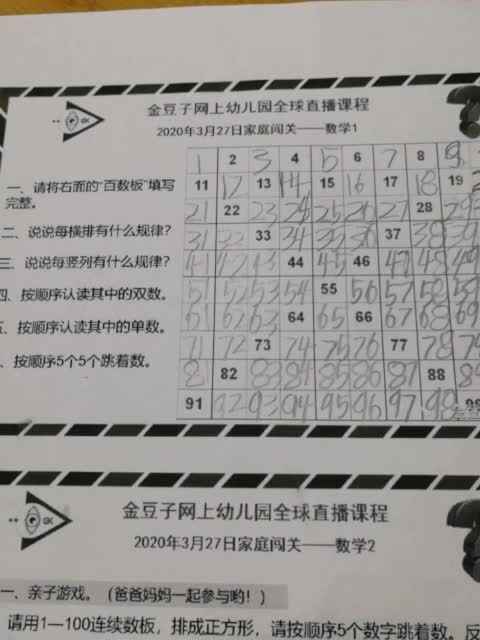 金豆子网上幼儿园全球直播课程
2020年3月27日家庭闯关——数学1
GK
一、请将右面的“百数板”填写
完整。
二、说说每横排有什么规律?
三、说说每竖列有什么规律?
四、按顺序认读其中的双数。
、按顺序认读其中的单数。
、按顺序5个5个跳着数。
1 2 3 4 5 6 7 8 9
11 12 13 14 15 16 17 18 19
21 22 23 24 25 26 27 28 29
31 32 33 34 35 36 37 38 39
41 42 43 44 45 46 47 48 49
51 52 53 54 55 56 57 58 59
61 62 63 64 65 66 67 68 69
71 72 73 74 75 76 77 78 79
81 82 83 84 85 86 87 88 89
91 92 93 94 95 96 97 98 99
金豆子网上幼儿园全球直播课程
2020年3月27日家庭闯关——数学2
GK
一、亲子游戏。(爸爸妈妈一起参与哟!)
请用1—100连续数板,排成正方形,请按顺序5个数字跳着数。反